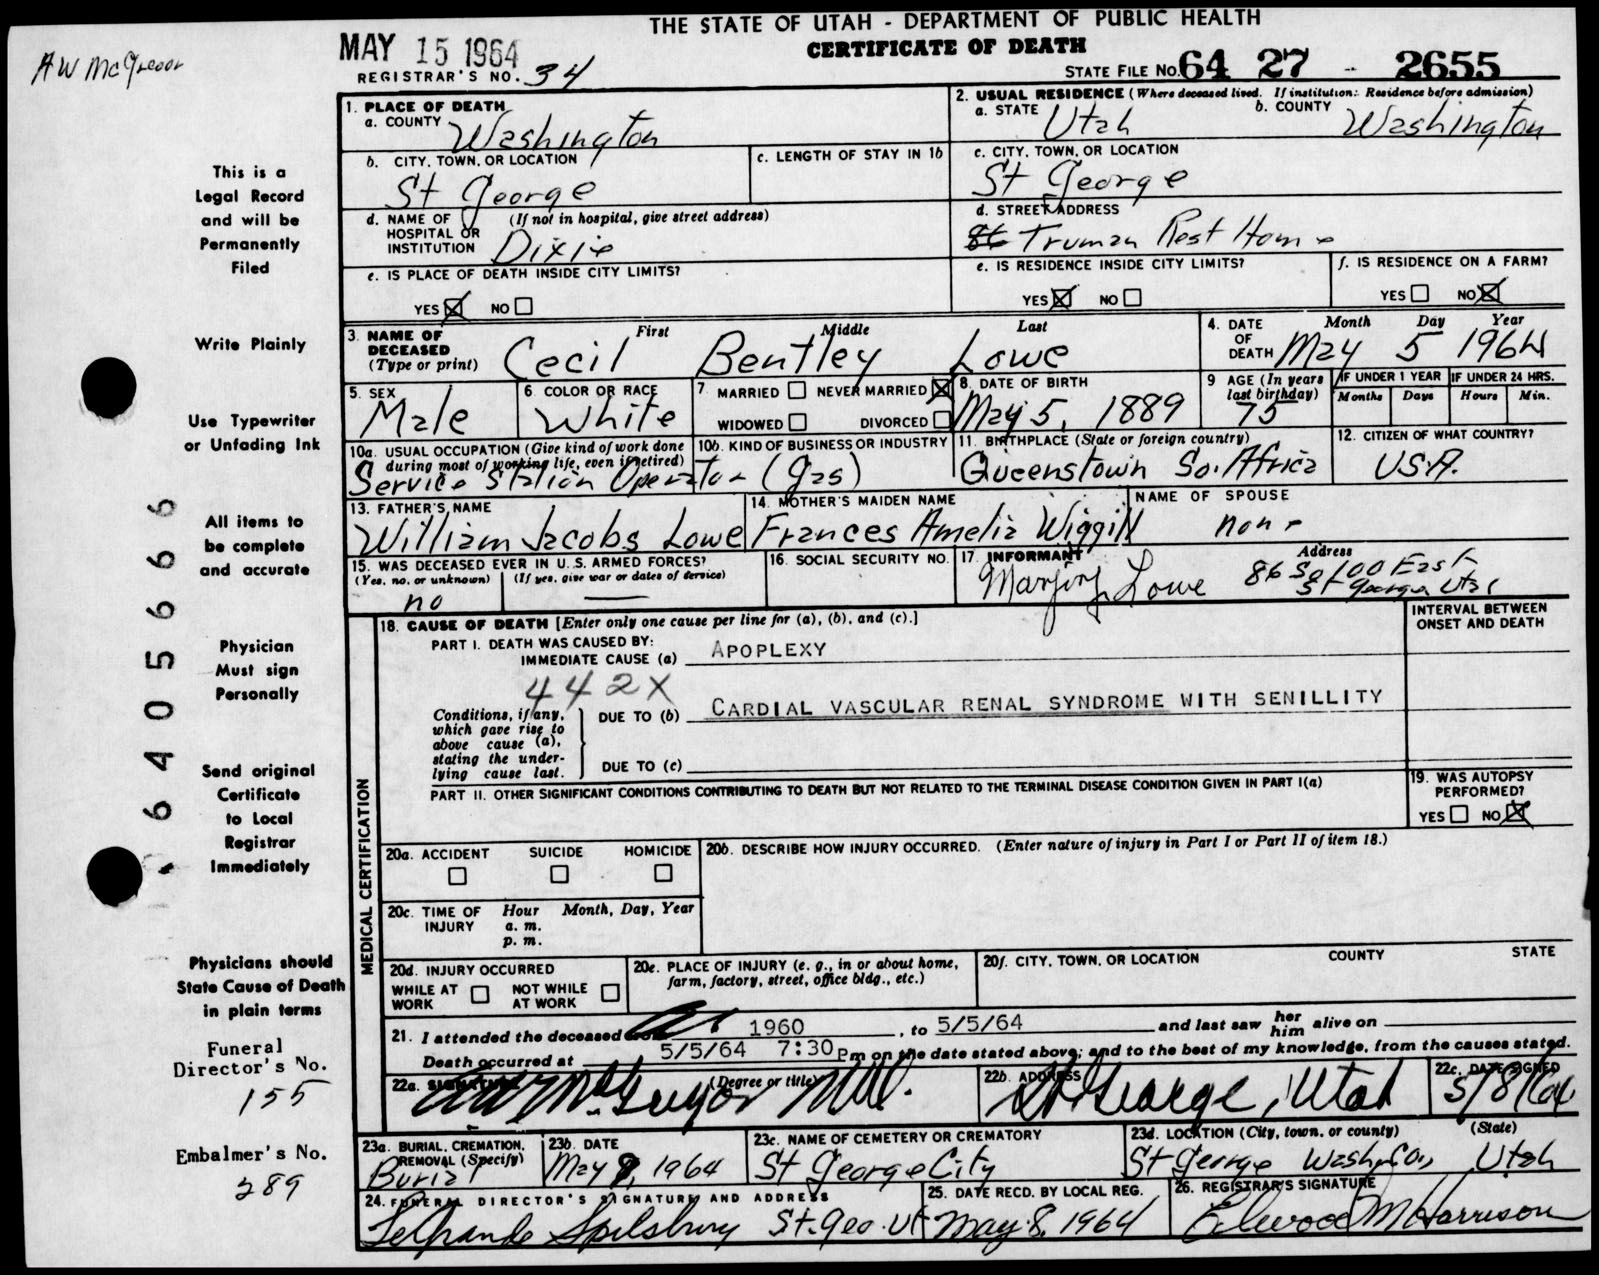 THE STATE OF UTAH - DEPARTMENT OF PUBLIC HEALTH
CERTIFICATE OF DEATH
AW McGregor
MAY 15 1964
REGISTRAR'S NO. 34
STATE FILE NO. 64 27 - 2655
This is a
Legal Record
and will be
Permanently
Filed
Write Plainly
Use Typewriter
or Unfading Ink
All items to
be complete
and accurate
Physician
Must sign
Personally
Send original
Certificate
to Local
Registrar
Immediately
Physicians should
State Cause of Death
in plain terms
Funeral
Director's No.
155
Embalmer's No.
289
6405666
1. PLACE OF DEATH
a. COUNTY Washington
b. CITY, TOWN, OR LOCATION
St George
c. LENGTH OF STAY IN 1b
d. NAME OF (If not in hospital, give street address)
HOSPITAL OR
INSTITUTION Dixie
e. IS PLACE OF DEATH INSIDE CITY LIMITS?
YES ☒ NO ☐
2. USUAL RESIDENCE (Where deceased lived. If institution: Residence before admission)
a. STATE Utah b. COUNTY Washington
c. CITY, TOWN, OR LOCATION
St George
d. STREET ADDRESS
86 Truman Rest Home
e. IS RESIDENCE INSIDE CITY LIMITS?
YES ☒ NO ☐
f. IS RESIDENCE ON A FARM?
YES ☐ NO ☒
3. NAME OF DECEASED (Type or print) First Middle Last
Cecil Bentley Lowe
4. DATE OF DEATH Month Day Year
May 5 1964
5. SEX
Male
6. COLOR OR RACE
White
7. MARRIED ☐ NEVER MARRIED ☒
WIDOWED ☐ DIVORCED ☐
8. DATE OF BIRTH
May 5, 1889
9 AGE (In years last birthday)
75
IF UNDER 1 YEAR IF UNDER 24 HRS.
Months Days Hours Min.
10a. USUAL OCCUPATION (Give kind of work done
during most of working life, even if retired)
10b. KIND OF BUSINESS OR INDUSTRY
Service Station Operator (gas)
11. BIRTHPLACE (State or foreign country)
Queenstown So. Africa
12. CITIZEN OF WHAT COUNTRY?
U.S.A.
13. FATHER'S NAME
William Jacobs Lowe
14. MOTHER'S MAIDEN NAME
Frances Amelia Wiggill
NAME OF SPOUSE
none
15. WAS DECEASED EVER IN U.S. ARMED FORCES?
(Yes, no, or unknown) (If yes, give war or dates of service)
no —
16. SOCIAL SECURITY NO.
17. INFORMANT Address
Marjory Lowe 86 So 100 East
St George Utah
MEDICAL CERTIFICATION
18. CAUSE OF DEATH [Enter only one cause per line for (a), (b), and (c).]
INTERVAL BETWEEN
ONSET AND DEATH
PART I. DEATH WAS CAUSED BY:
IMMEDIATE CAUSE (a) APOPLEXY
442X
Conditions, if any,
which gave rise to
above cause (a),
stating the under-
lying cause last.
DUE TO (b) CARDIAL VASCULAR RENAL SYNDROME WITH SENILLITY
DUE TO (c)
PART II. OTHER SIGNIFICANT CONDITIONS CONTRIBUTING TO DEATH BUT NOT RELATED TO THE TERMINAL DISEASE CONDITION GIVEN IN PART I(a)
19. WAS AUTOPSY
PERFORMED?
YES ☐ NO ☒
20a. ACCIDENT SUICIDE HOMICIDE
☐ ☐ ☐
20b. DESCRIBE HOW INJURY OCCURRED. (Enter nature of injury in Part I or Part II of item 18.)
20c. TIME OF INJURY Hour Month, Day, Year
a. m.
p. m.
20d. INJURY OCCURRED
WHILE AT WORK ☐ NOT WHILE AT WORK ☐
20e. PLACE OF INJURY (e. g., in or about home,
farm, factory, street, office bldg., etc.)
20f. CITY, TOWN, OR LOCATION COUNTY STATE
21. I attended the deceased 1960, to 5/5/64 and last saw her him alive on
Death occurred at 5/5/64 7:30 P m on the date stated above; and to the best of my knowledge, from the causes stated.
22a. SIGNATURE (Degree or title)
AW McGregor MD.
22b. ADDRESS
St George, Utah
22c. DATE SIGNED
5/8/64
23a. BURIAL, CREMATION,
REMOVAL (Specify)
Burial
23b. DATE
May 8, 1964
23c. NAME OF CEMETERY OR CREMATORY
St George City
23d. LOCATION (City, town, or county) (State)
St George Wash. Co., Utah
24. FUNERAL DIRECTOR'S SIGNATURE AND ADDRESS
LeGrande Spilsbury St. Geo. Ut
25. DATE RECD. BY LOCAL REG.
May 8, 1964
26. REGISTRAR'S SIGNATURE
Elwood M Harrison